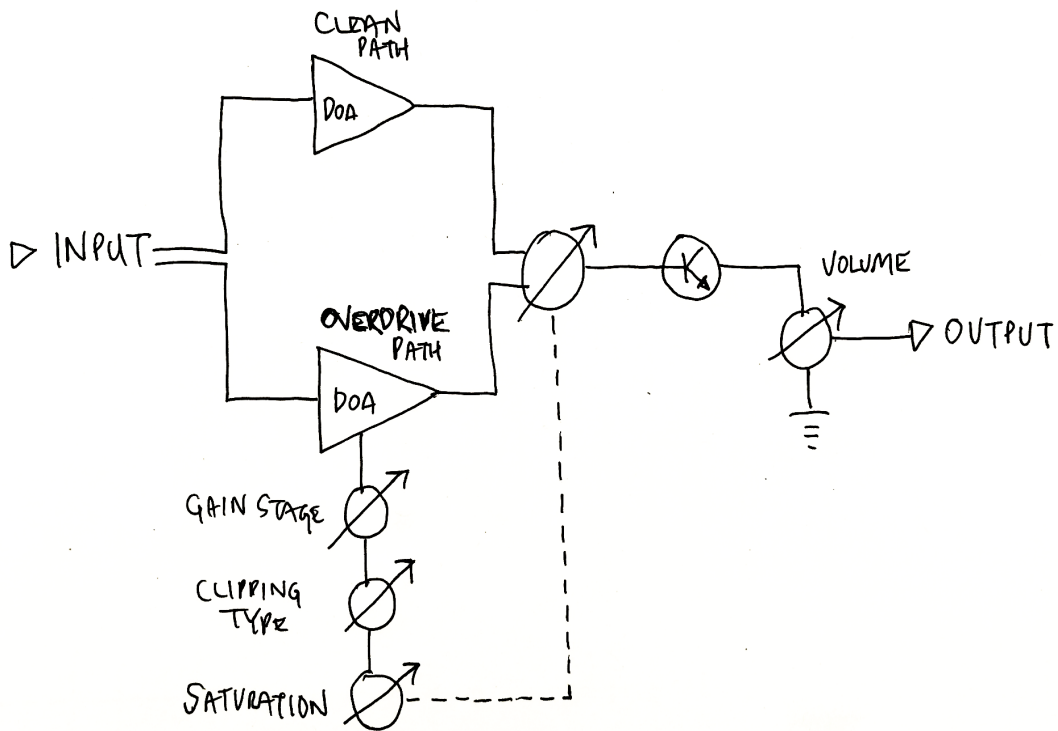 CLEAN
PATH
DOA
INPUT
OVERDRIVE
PATH
DOA
VOLUME
OUTPUT
GAIN STAGE
CLIPPING
TYPE
SATURATION